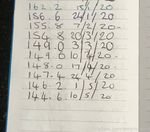 162.2 15/1/20
156.6 24/1/20
155.8 7/2/20
154.8 20/3/20
149.0 3/3/20
149.0 10/4/20
148.0 17/4/20
147.4 24/4/20
146.2 1/5/20
144.6 10/5/20